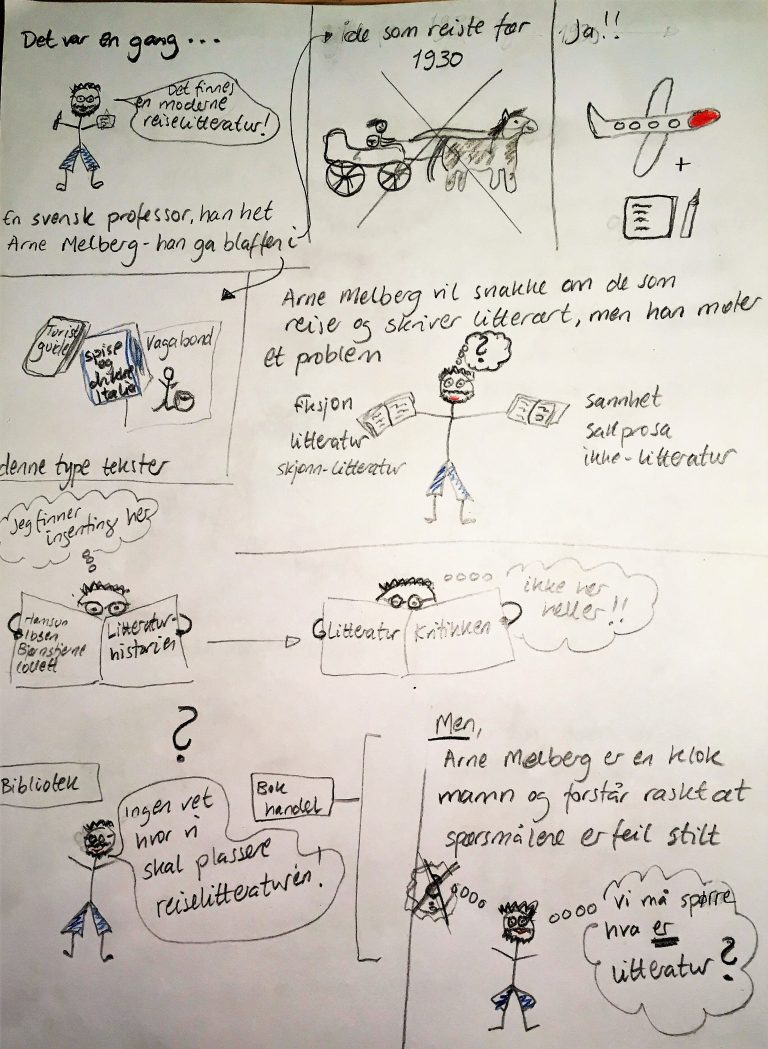 Det var en gang...
Det finnes
en moderne
reiselitteratur!
En svensk professor, han het
Arne Melberg - han ga blaffen i
de som reiste før
1930
Ja!!
Turist
guide
spise
og
drikke
Italia
Vagabond
denne type tekster
Arne Melberg vil snakke om de som
reise og skriver litterært, men han møter
et problem
?
fiksjon
litteratur
skjønn-litteratur
sannhet
sakprosa
ikke-litteratur
Jeg finner
ingenting her
Hamsun
Ibsen
Bjørnstjerne
Collett
Litteratur-
historien
Litteratur
Kritikken
ikke her
heller!!
?
Bibliotek
Bok
handel
Ingen vet
hvor vi
skal plassere
reiselitteraturen!
Men,
Arne Melberg er en klok
mann og forstår raskt at
spørsmålene er feil stilt
vi må spørre
hva er
litteratur?